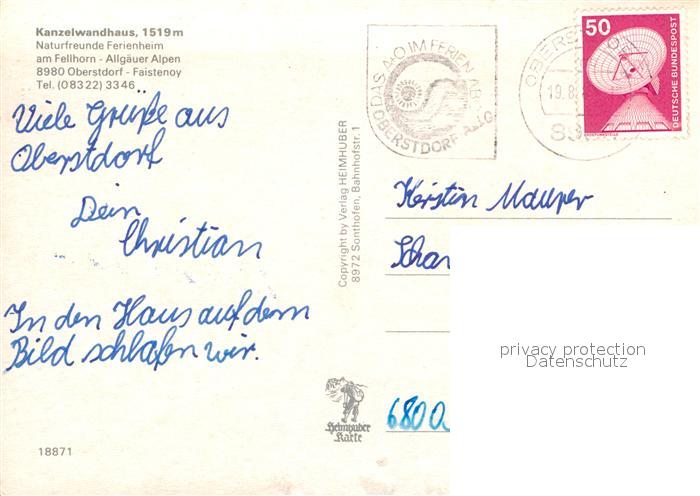 Kanzelwandhaus, 1519 m
Naturfreunde Ferienheim
am Fellhorn - Allgäuer Alpen
8980 Oberstdorf - Faistenoy
Tel. (0 83 22) 33 46
Viele Grüße aus
Oberstdorf
Dein
Christian
In den Haus auf dem
Bild schlafen wir.
18871
Copyright by Verlag HEIMHUBER
8972 Sonthofen, Bahnhofstr. 1
Heimhuber
Karte
DAS A+O IM FERIEN
OBERSTDORF
OBERS
19.8.
50
DEUTSCHE BUNDESPOST
ERDEFUNKSTELLE
Kerstin Maurer
6800
privacy protection
Datenschutz